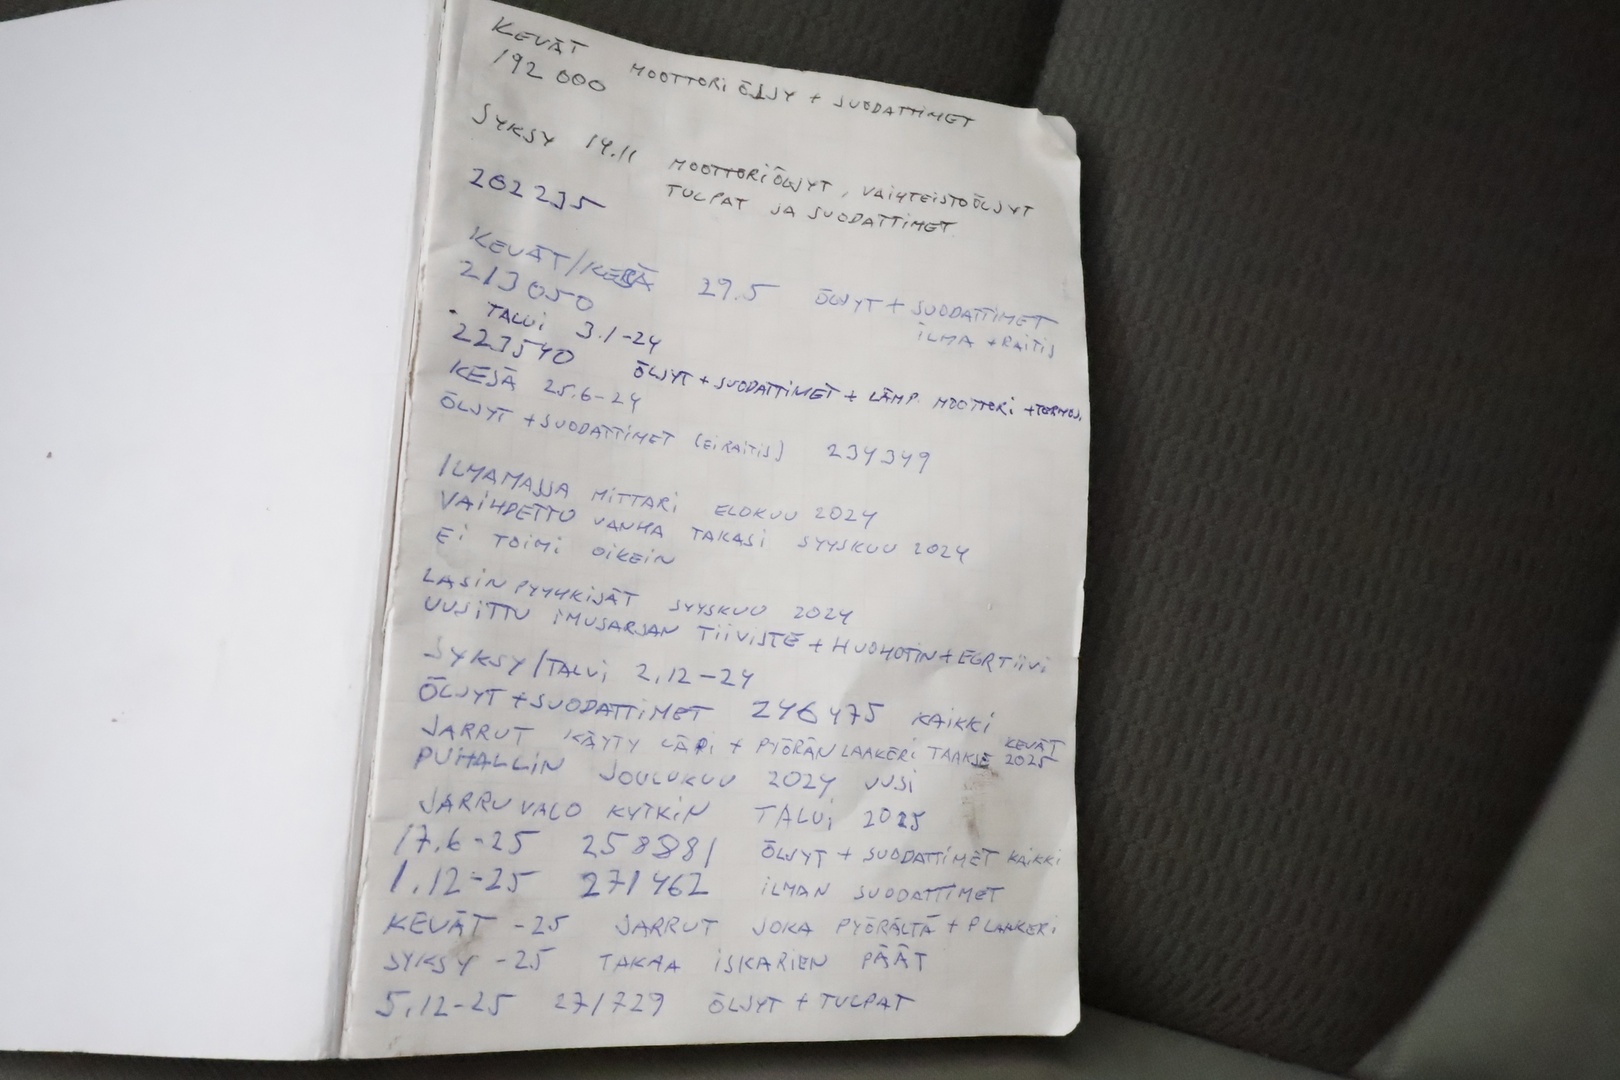 KEVÄT
192 000 MOOTTORI ÖLJY + SUODATTIMET
SYKSY 14.11 MOOTTORIÖLJYT, VAIHTEISTOÖLJYT
202235 TULPAT JA SUODATTIMET
KEVÄT/KESÄ 29.5 ÖLJYT + SUODATTIMET
213050 ILMA + RAITIS
TALVI 3.1-24
223540 ÖLJYT + SUODATTIMET + LÄMP. MOOTTORI + TERMOS.
KESÄ 25.6-24
ÖLJYT + SUODATTIMET (EI RAITIS) 234349
ILMAMASSA MITTARI ELOKUU 2024
VAIHDETTU VANHA TAKASI SYYSKUU 2024
EI TOIMI OIKEIN
LASINPYYHKIJÄT SYYSKUU 2024
UUSITTU IMUSARJAN TIIVISTE + HUOHOTIN + EGR TIIVI
SYKSY/TALVI 2.12-24
ÖLJYT + SUODATTIMET 246475 KAIKKI
JARRUT KÄYTY LÄPI + PYÖRÄN LAAKERI TAAKSE KEVÄT 2025
PUHALLIN JOULUKUU 2024 UUSI
JARRUVALO KYTKIN TALVI 2025
17.6-25 258881 ÖLJYT + SUODATTIMET KAIKKI
1.12-25 271462 ILMAN SUODATTIMET
KEVÄT -25 JARRUT JOKA PYÖRÄLTÄ + P LAAKERI
SYKSY -25 TAKAA ISKARIEN PÄÄT
5.12-25 271729 ÖLJYT + TULPAT